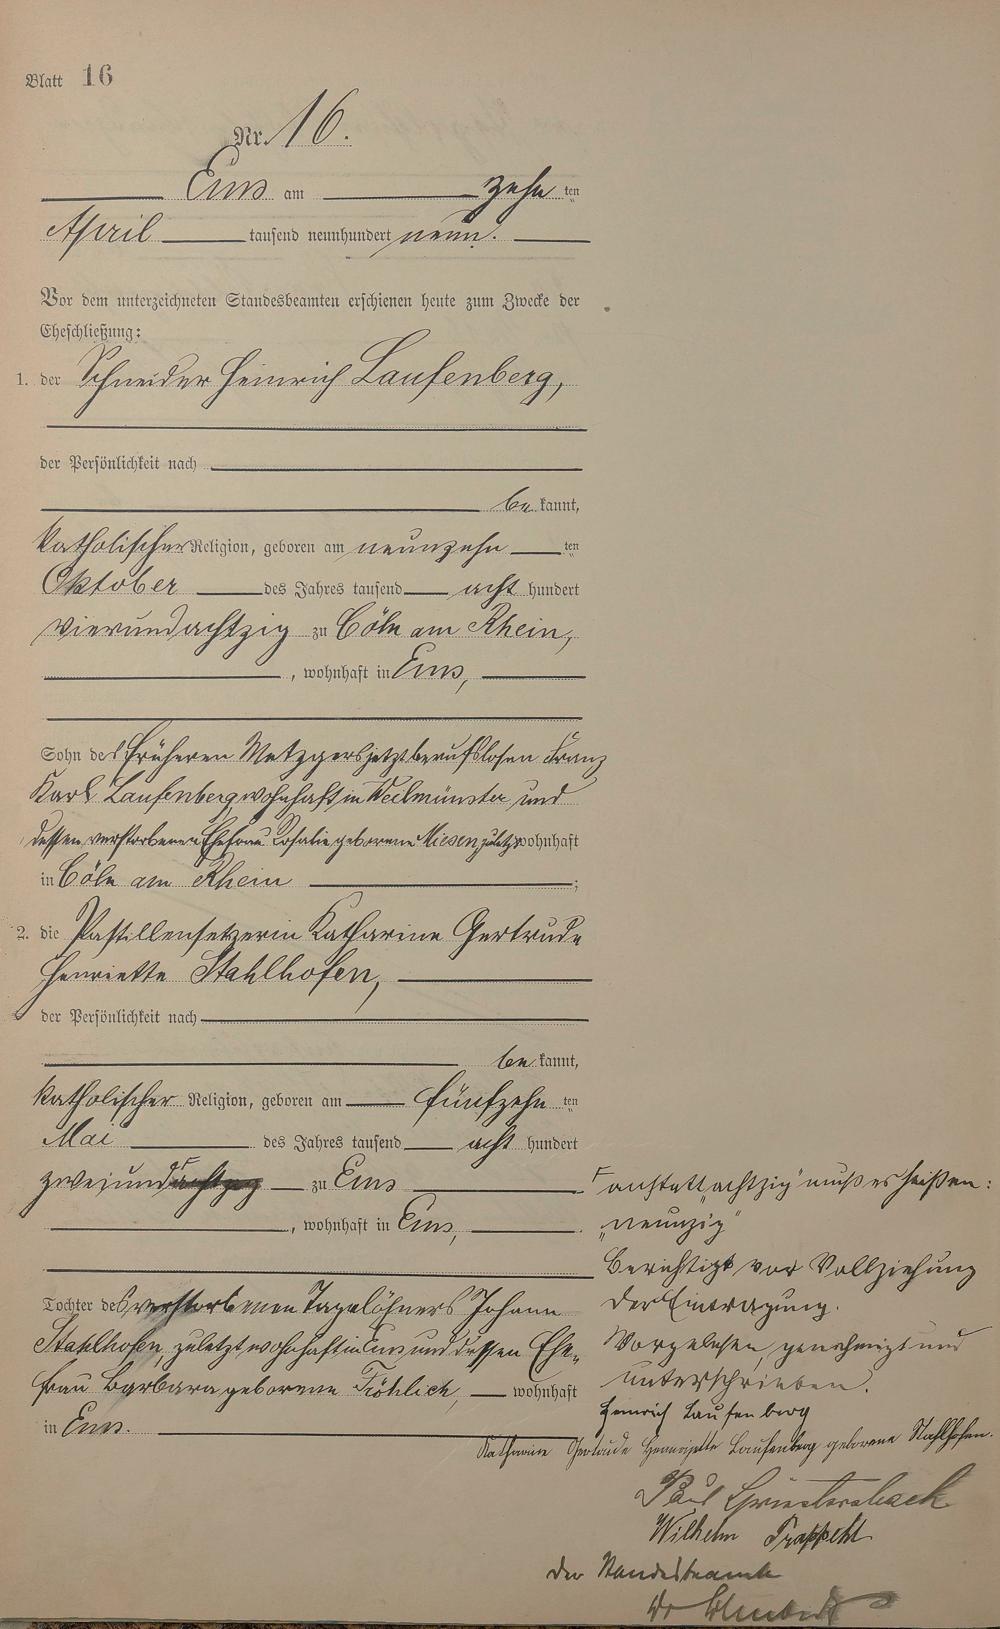 Blatt 16
Nr. 16.
Ems am zehn ten
April tausend neunhundert neun.
Vor dem unterzeichneten Standesbeamten erschienen heute zum Zwecke der
Eheschließung:
1. der Schneider Heinrich Laufenberg,
der Persönlichkeit nach
be kannt,
katholischer Religion, geboren am neunzehn ten
Oktober des Jahres tausend acht hundert
vierundachtzig zu Cöln am Rhein,
, wohnhaft in Ems,
Sohn des früheren Metzgers jetzt berufslosen Franz
Karl Laufenberg, wohnhaft in Weilmünster und
dessen verstorbenen Ehefrau Rosalie geborene Miesen zuletzt wohnhaft
in Cöln am Rhein ;
2. die Pastillensetzerin Katharine Gertrude
Henriette Stahlhofen,
der Persönlichkeit nach
be kannt,
katholischer Religion, geboren am fünfzehn ten
Mai des Jahres tausend acht hundert
zweiundachtzig zu Ems
, wohnhaft in Ems,
Tochter des verstorbenen Tagelöhners Johann
Stahlhofen, zuletzt wohnhaft in Ems und dessen Ehe-
frau Barbara geborene Fröhlich, wohnhaft
in Ems.
anstatt „achtzig" muß es heißen:
„neunzig"
Berichtigt vor Vollziehung
der Eintragung.
Vorgelesen, genehmigt und
unterschrieben.
Heinrich Laufenberg
Katharine Gertrude Henriette Laufenberg geborene Stahlhofen.
Paul
Wilhelm
Der Standesbeamte